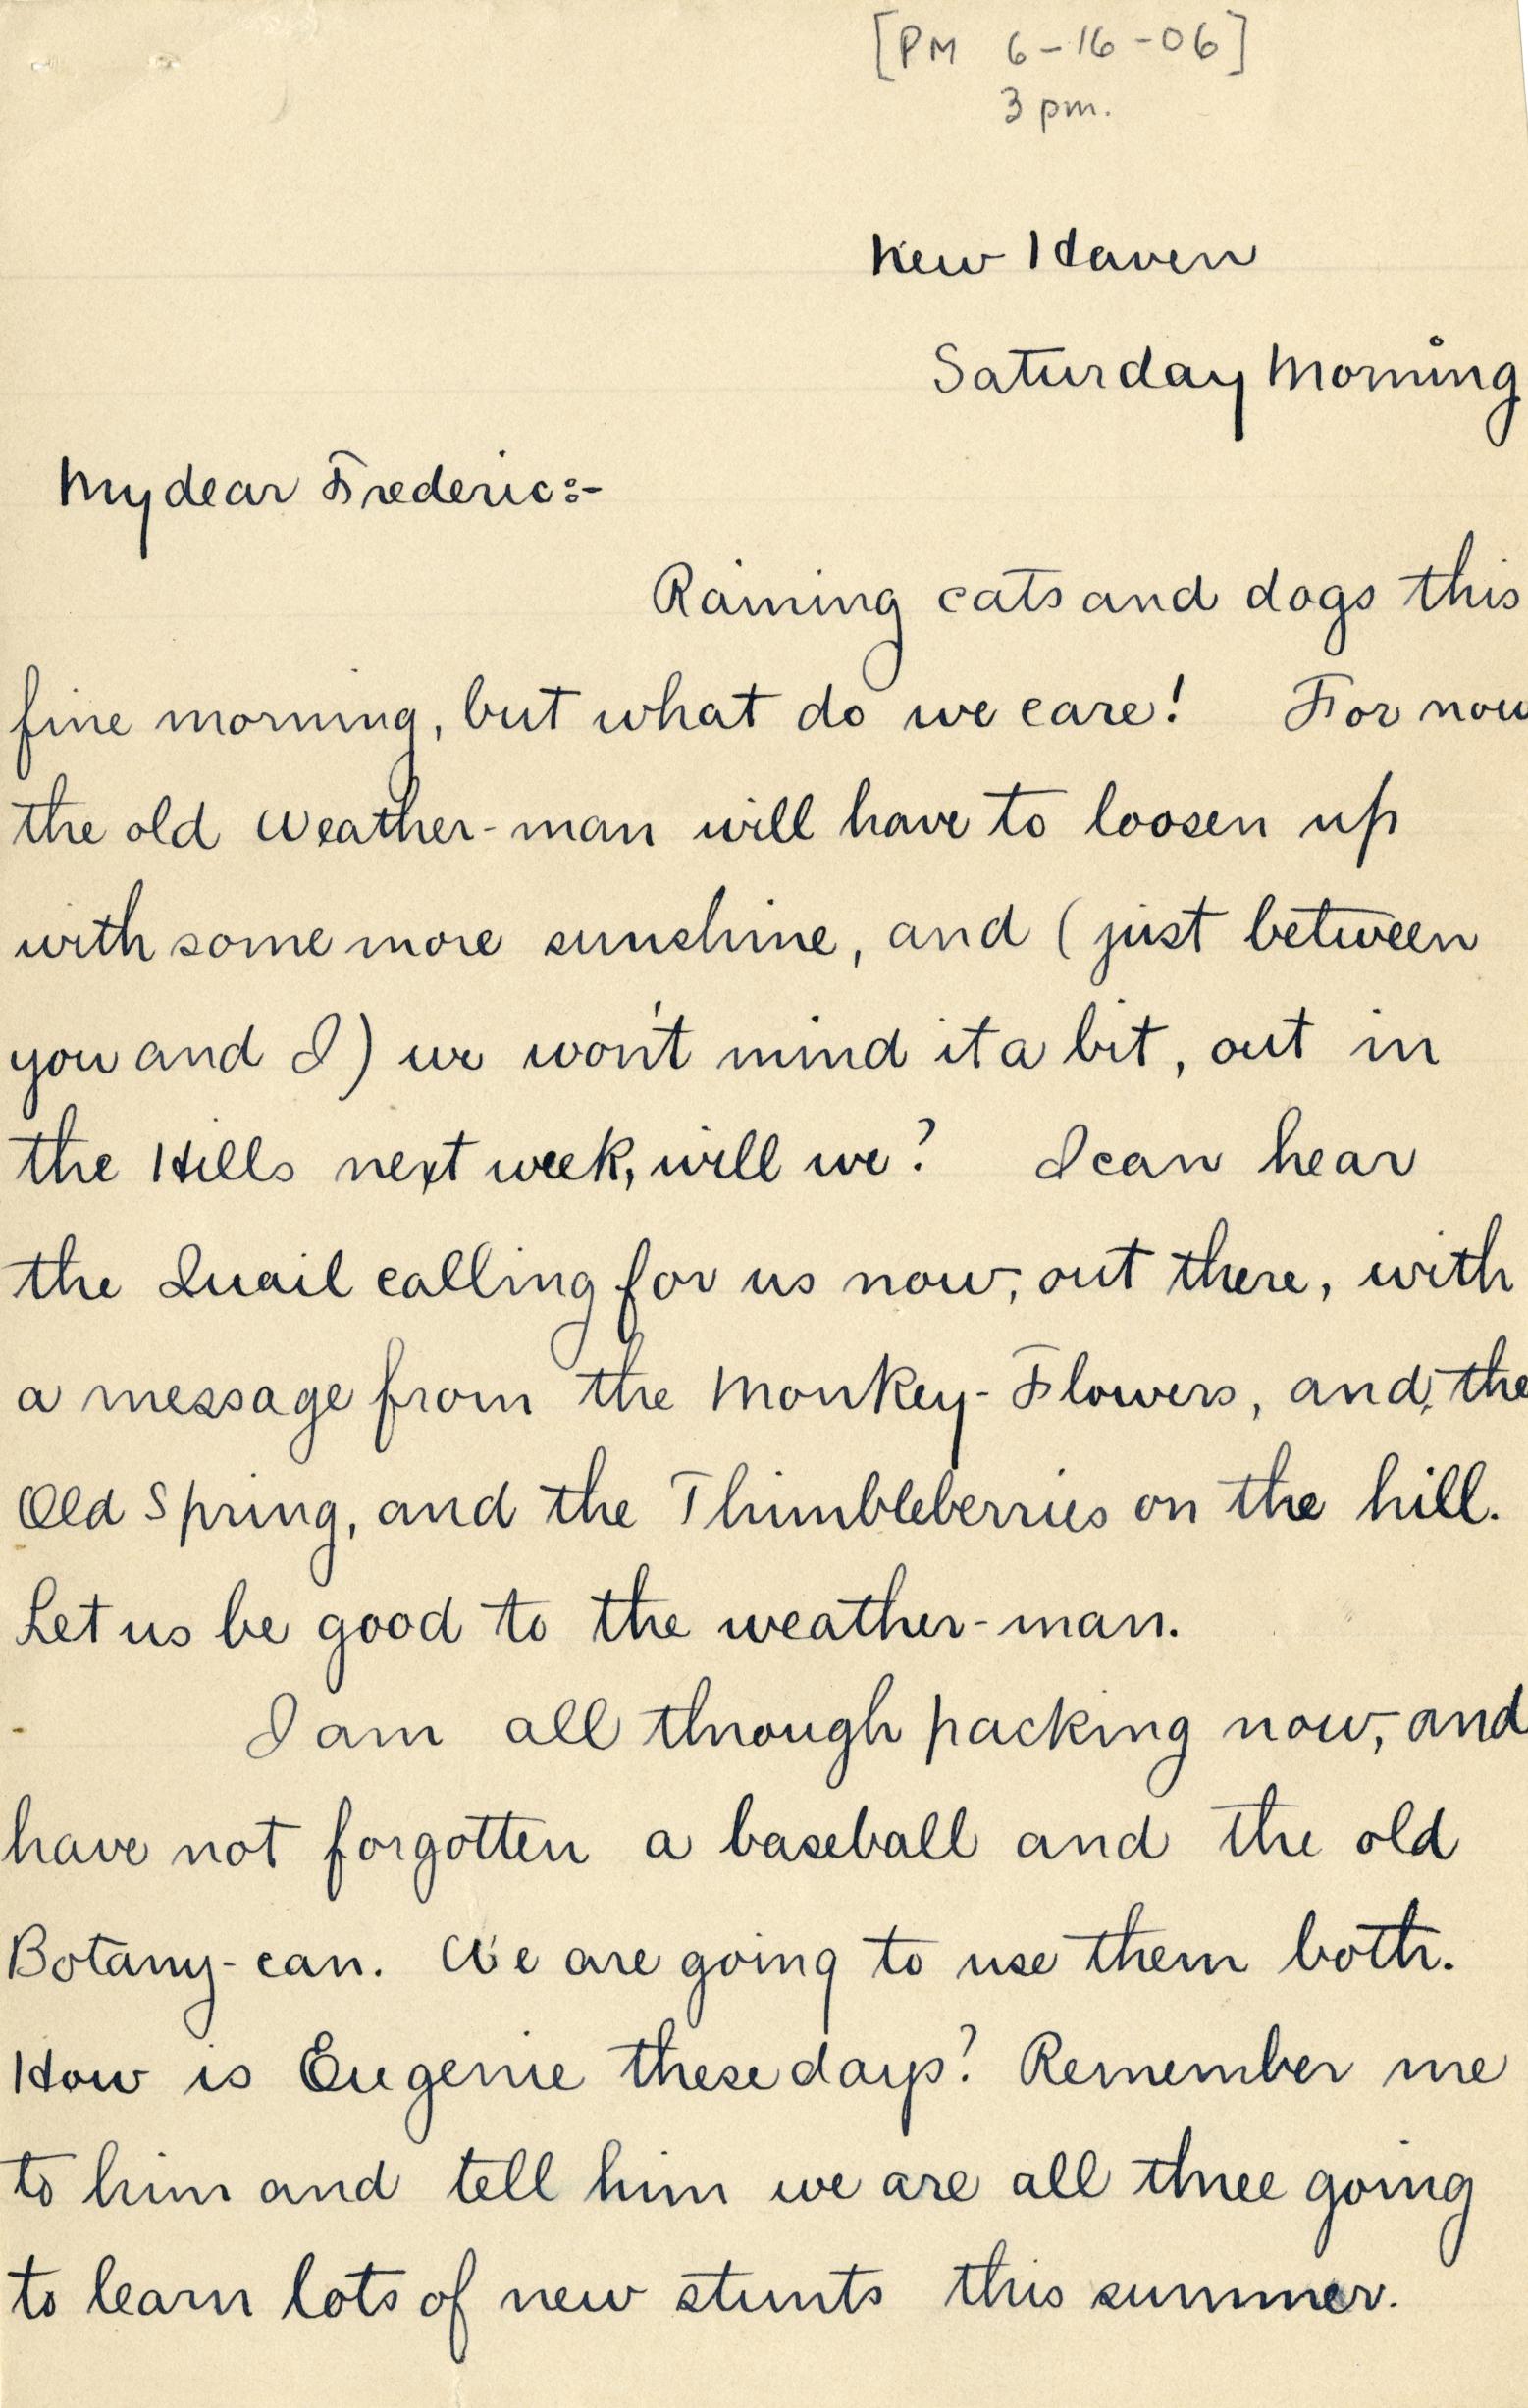 [PM 6-16-06]
3 pm.
New Haven
Saturday Morning
My dear Frederic:-
Raining cats and dogs this
fine morning, but what do we care! For now
the old weather-man will have to loosen up
with some more sunshine, and (just between
you and I) we won't mind it a bit, out in
the Hills next week, will we? I can hear
the Quail calling for us now, out there, with
a message from the Monkey-Flowers, and, the
Old Spring, and the Thimbleberries on the hill.
Let us be good to the weather-man.
I am all through packing now, and
have not forgotten a baseball and the old
Botany-can. We are going to use them both.
How is Eugenie these days? Remember me
to him and tell him we are all three going
to learn lots of new stunts this summer.